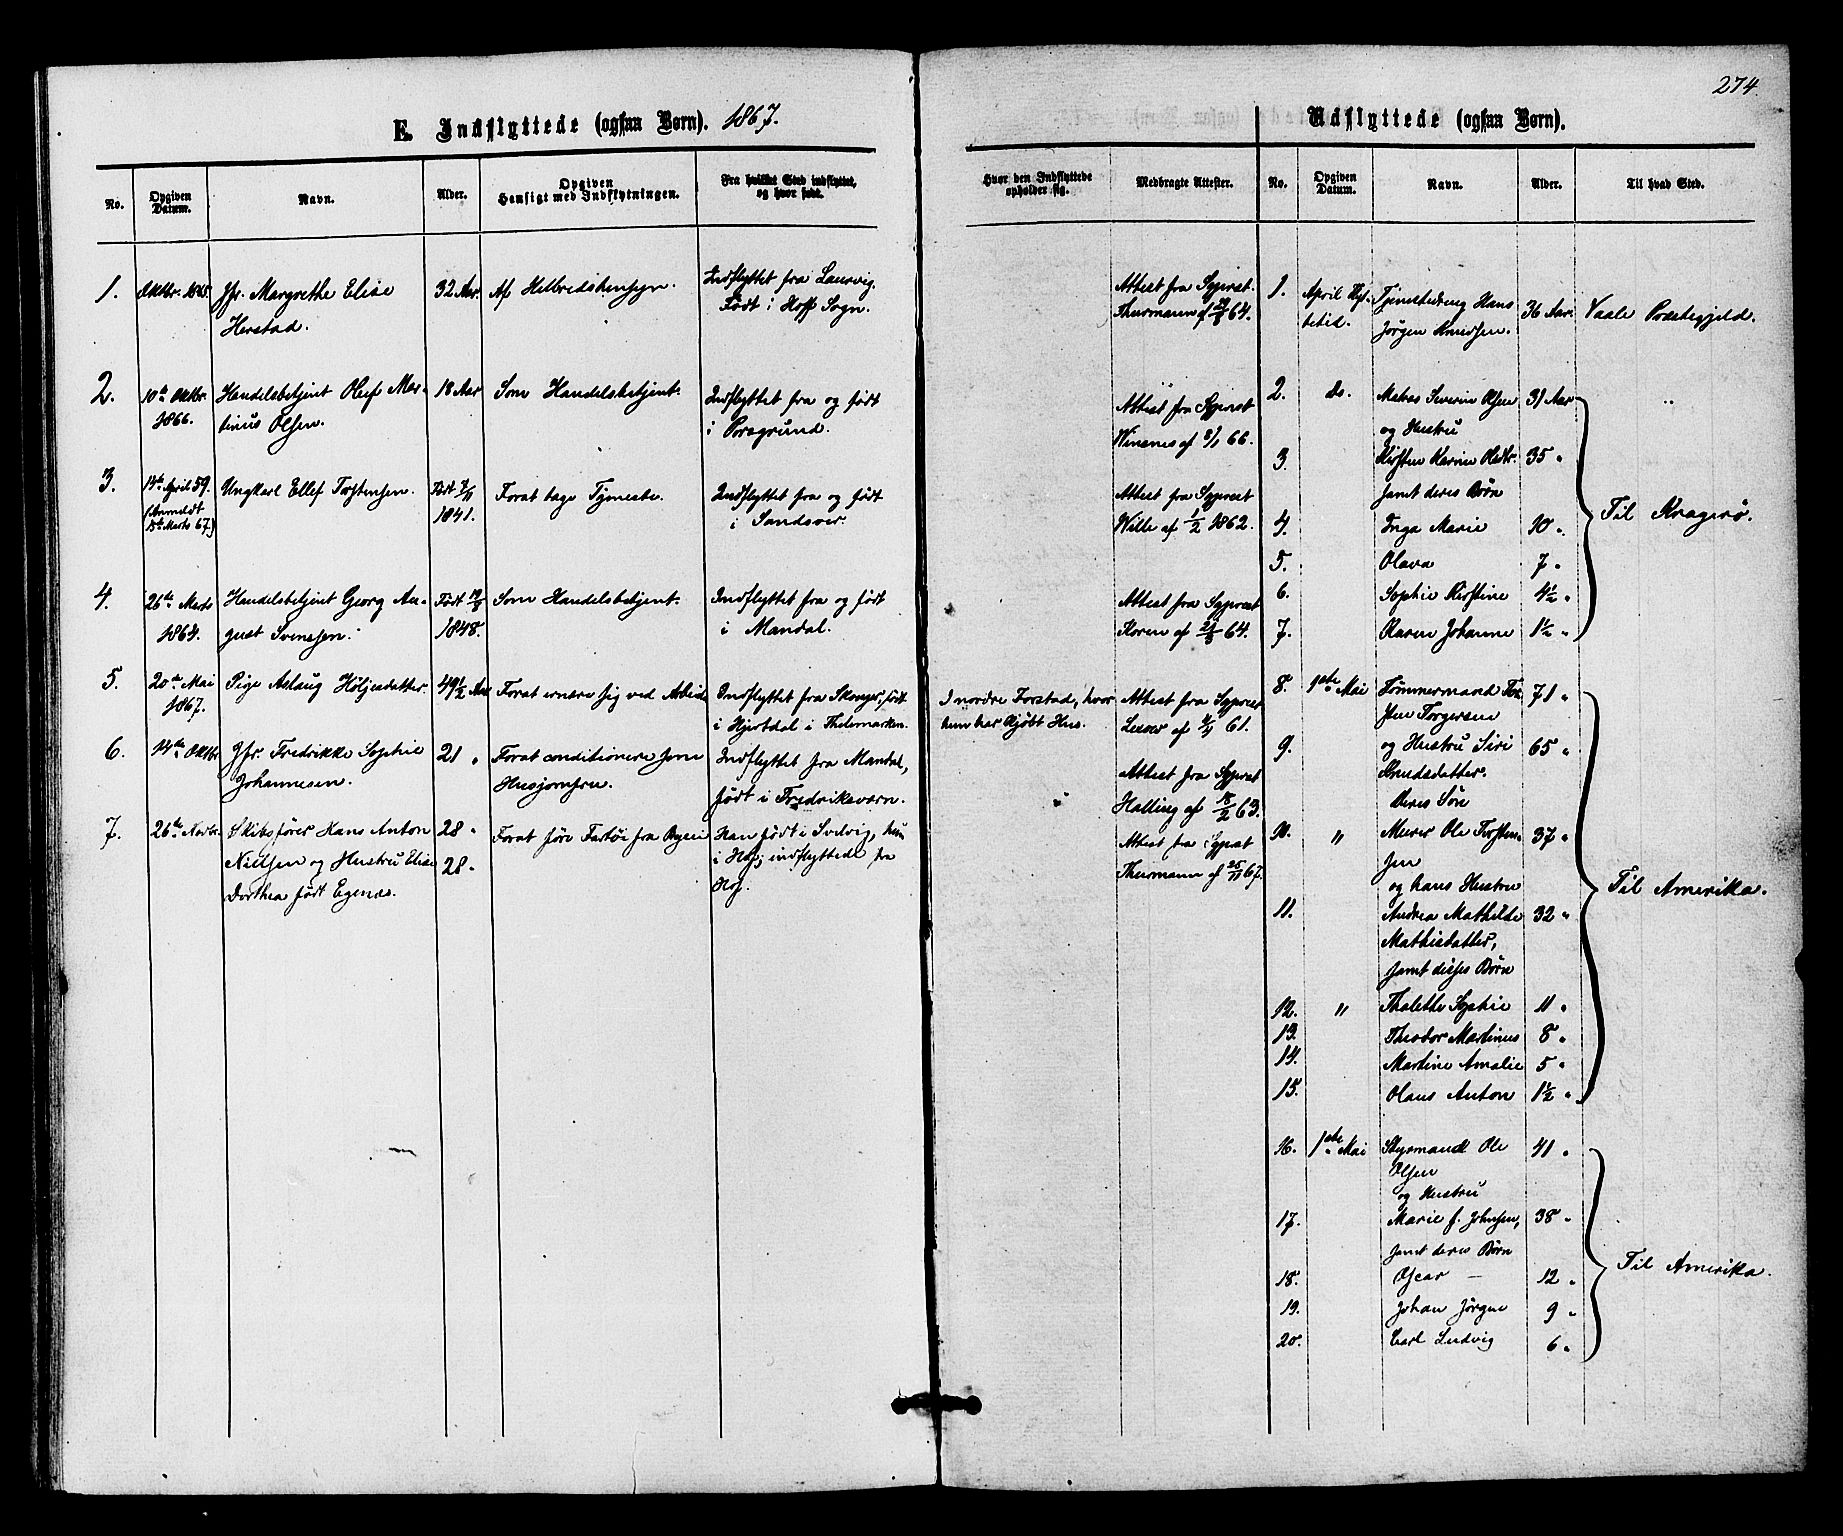 274.
E. Indflyttede (ogsaa Børn). 1867.
No.
Opgiven Datum.
Navn.
Alder.
Opgiven Hensigt med Indflytningen.
Fra hvilket Sted indflyttet, og hvor født.
Hvor den Indflyttede opholder sig.
Medbragte Attester.
1.
Oktbr. 1865.
Jfr. Margrethe Elise
Herstad.
32 Aar.
Af Helbredshensyn.
Indflyttet fra Laurvig.
Født i Hoff Sogn.
Attest fra Sgprest
Thurmann af 64.
2.
10de Oktbr.
1866.
Handelsbetjent Oluf Mar-
tinus Olsen.
18 Aar
Som Handelsbetjent.
Indflyttet fra og født
i Porsgrund.
Attest fra Sgprest
Winsnes af 8/1 66.
3.
14de April 59.
(Anmeldt
15de Marts 67.)
Ungkarl Ellef Torstensen.
Født
1841.
Forat tage Tjeneste.
Indflyttet fra og født
i Sandsvær.
Attest fra Sgprest
Wille af 1/2 1862.
4.
26de Marts
1864.
Handelsbetjent Georg Au-
gust Svensen.
Født
1848.
Som Handelsbetjent.
Indflyttet fra og født
i Mandal.
Attest fra Sgprest
Koren af 21/3 64.
5.
20de Mai
1867.
Pige Aslaug Høljesdatter.
49 1/2 Aar
Forat ernære sig ved Arbeide
Indflyttet fra Skonger, født
i Hjertdal i Thelemarken.
I nordre Jarstad, hvor
hun har kjøbt Hus.
Attest fra Sgprest
af 61.
6.
14de Oktbr
Jfr. Fredrikke Sophie
Johannesen.
21 "
Forat conditionere som
Husjomfru.
Indflyttet fra Mandal,
født i Fredriksværn.
"
Attest fra Sgprest
Halling af 18/2 63.
7.
26de Novbr.
Skibsfører Hans Anton
Nielsen og Hustru Elise
Dorthea født Egenæs.
28 "
28 "
Forat føre Fartøi fra Byen
Han født i Svelvig, hun
i Hof; indflyttede fra
Hof.
Attest fra Sgprest
Thurmann af 25/11 67.
Udflyttede (ogsaa Børn).
No.
Opgiven Datum.
Navn.
Alder.
Til hvad Sted.
1.
April Flyt-
tetid.
Tjenestedreng Hans
Jörgen Knudsen.
36 Aar.
Vaale Præstegjeld.
2.
ds.
Matros Severin Olsen
og Hustru
31 Aar
3.
Kirsten Karine Olsdtr.
samt deres Børn
35 "
4.
Inga Marie
10 "
5.
Olava
7 "
6.
Sophie Kirstine
4 1/2 "
7.
Karen Johanne
1 1/2 "
Til Kragerø.
8.
1ste Mai
Tømmermand Tor-
sten Torgersen
71 "
9.
og Hustru Siri
Knudsdatter.
Deres Søn
65 "
10.
"
Murer Ole Torsten-
sen
og hans Hustru
37 "
11.
Andrea Mathilde
Mathisdatter,
samt disses Børn
32 "
12.
"
Thalette Sophie
11 "
13.
Theodor Martinus
8 "
14.
Martine Amalie
5 "
15.
Olaus Anton
1 1/2 "
Til Amerika.
16.
1ste Mai
Styrmand Ole
Olsen
og Hustru
41 "
17.
Marie f. Johnsen,
samt deres Børn
38 "
18.
Oscar —
12 "
19.
Johan Jørgen
9 "
20.
Carl Ludvig
6 "
Til Amerika.